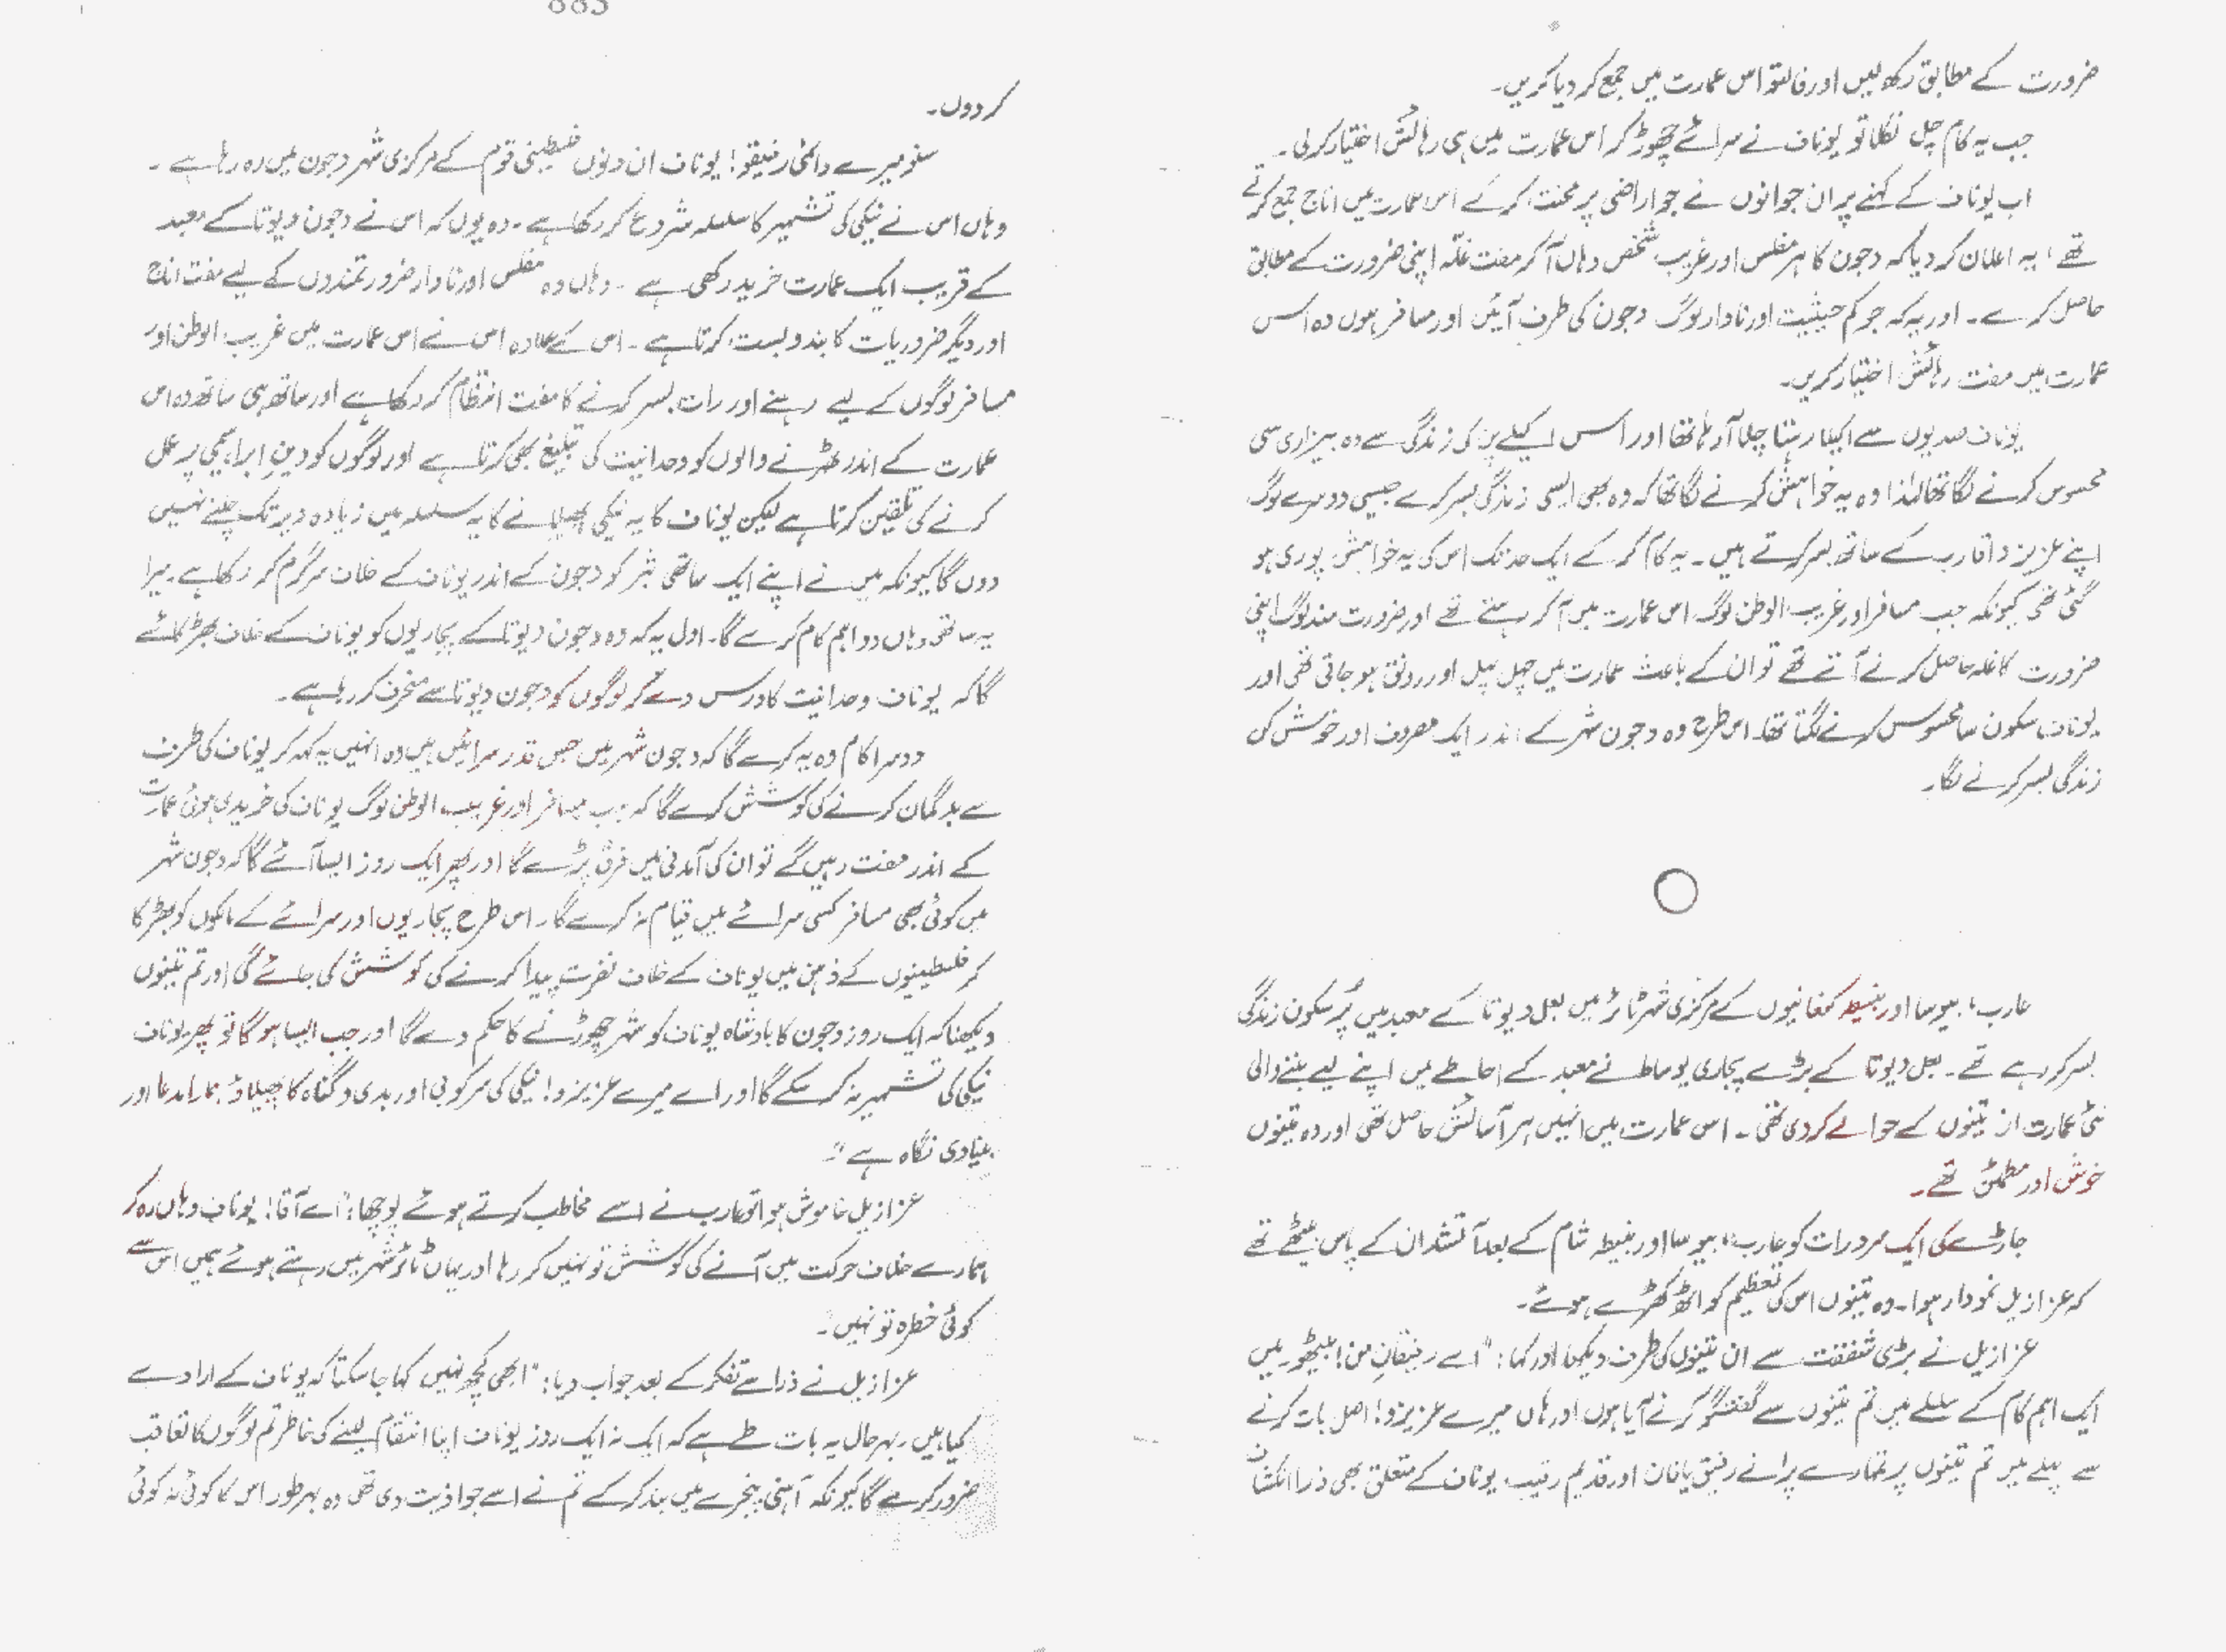 ضرورت کے مطابق رکھ لیں اور فالتو اس عمارت میں جمع کر دیا کریں۔
جب یہ کام چل نکلا تو یوناف نے سرائے چھوڑ کر اس عمارت میں ہی رہائش اختیار کر لی۔
اب یوناف کے کہنے پر ان جوانوں نے جو اراضی پر محنت کر کے اس عمارت میں اناج جمع کرتے
تھے، یہ اعلان کر دیا کہ دجون کا ہر مفلس اور غریب شخص وہاں آ کر مفت غلّہ اپنی ضرورت کے مطابق
حاصل کرے۔ اور یہ کہ جو کم حیثیت اور نادار لوگ دجون کی طرف آئیں اور مسافر ہوں وہ اس
عمارت میں مفت رہائش اختیار کریں۔
یوناف صدیوں سے اکیلا رہتا چلا آ رہا تھا اور اس اکیلے پن کی زندگی سے وہ بیزاری سی
محسوس کرنے لگا تھا لہٰذا وہ یہ خواہش کرنے لگا تھا کہ وہ بھی ایسی زندگی بسر کرے جیسی دوسرے لوگ
اپنے عزیز و اقارب کے ساتھ بسر کرتے ہیں۔ یہ کام کر کے ایک حد تک اس کی یہ خواہش پوری ہو
گئی تھی کیونکہ جب مسافر اور غریب الوطن لوگ اس عمارت میں آ کر رہتے تھے اور ضرورت مند لوگ اپنی
ضرورت کا غلہ حاصل کرنے آتے تھے تو ان کے باعث عمارت میں چہل پہل اور رونق ہو جاتی تھی اور
یوناف سکون سا محسوس کرنے لگتا تھا۔ اس طرح وہ دجون شہر کے اندر ایک مصروف اور خوش کن
زندگی بسر کرنے لگا۔
عارب، بیوسا اور بنیطہ کنعانیوں کے مرکزی شہر ٹائر میں بعل دیوتا کے معبد میں پُرسکون زندگی
بسر کر رہے تھے۔ بعل دیوتا کے بڑے پجاری یوساط نے معبد کے احاطے میں اپنے لیے بننے والی
نئی عمارت ان تینوں کے حوالے کر دی تھی۔ اس عمارت میں انہیں ہر آسائش حاصل تھی اور وہ تینوں
خوش اور مطمئن تھے۔
جاڑے کی ایک سرد رات کو عارب، بیوسا اور بنیطہ شام کے بعد آتشدان کے پاس بیٹھے تھے
کہ عزازیل نمودار ہوا۔ وہ تینوں اس کی تعظیم کو اٹھ کھڑے ہوئے۔
عزازیل نے بڑی شفقت سے ان تینوں کی طرف دیکھا اور کہا: "اے رفیقانِ من! بیٹھو۔ میں
ایک اہم کام کے سلسلے میں تم تینوں سے گفتگو کرنے آیا ہوں اور ہاں میرے عزیزو! اصل بات کرنے
سے پہلے میں تم تینوں پر تمہارے پرانے رفیق یافان اور قدیم رقیب یوناف کے متعلق بھی ذرا انکشاف
883
کر دوں۔
سنو میرے دائمی رفیقو! یوناف ان دنوں فلسطینی قوم کے مرکزی شہر دجون میں رہ رہا ہے۔
وہاں اس نے نیکی کی تشہیر کا سلسلہ شروع کر رکھا ہے۔ وہ یوں کہ اس نے دجون دیوتا کے معبد
کے قریب ایک عمارت خرید رکھی ہے۔ وہاں وہ مفلس اور نادار ضرورتمندوں کے لیے مفت اناج
اور دیگر ضروریات کا بندوبست کرتا ہے۔ اس کے علاوہ اس نے اس عمارت میں غریب الوطن اور
مسافر لوگوں کے لیے رہنے اور رات بسر کرنے کا مفت انتظام کر رکھا ہے اور ساتھ ہی ساتھ وہ اس
عمارت کے اندر ٹھہرنے والوں کو وحدانیت کی تبلیغ بھی کرتا ہے اور لوگوں کو دینِ ابراہیمی پر عمل
کرنے کی تلقین کرتا ہے لیکن یوناف کا یہ نیکی پھیلانے کا یہ سلسلہ میں زیادہ دیر تک چلنے نہیں
دوں گا کیونکہ میں نے اپنے ایک ساتھی ثبر کو دجون کے اندر یوناف کے خلاف سرگرم کر رکھا ہے۔ میرا
یہ ساتھی وہاں دو اہم کام کرے گا۔ اول یہ کہ وہ دجون دیوتا کے پجاریوں کو یوناف کے خلاف بھڑکائے
گا کہ یوناف وحدانیت کا درس دے کر لوگوں کو دجون دیوتا سے منحرف کر رہا ہے۔
دوسرا کام وہ یہ کرے گا کہ دجون شہر میں جس قدر سرائیں ہیں وہ انہیں یہ کہہ کر یوناف کی طرف
سے بدگمان کرنے کی کوشش کرے گا کہ جب مسافر اور غریب الوطن لوگ یوناف کی خریدی ہوئی عمارت
کے اندر مفت رہیں گے تو ان کی آمدنی میں فرق پڑے گا اور پھر ایک روز ایسا آئے گا کہ دجون شہر
میں کوئی بھی مسافر کسی سرائے میں قیام نہ کرے گا۔ اس طرح پجاریوں اور سرائے کے مالکوں کو بھڑکا
کر فلسطینیوں کے ذہن میں یوناف کے خلاف نفرت پیدا کرنے کی کوشش کی جائے گی اور تم تینوں
دیکھنا کہ ایک روز دجون کا بادشاہ یوناف کو شہر چھوڑنے کا حکم دے گا اور جب ایسا ہو گا تو پھر یوناف
نیکی کی تشہیر نہ کر سکے گا اور اے میرے عزیزو! نیکی کی سرکوبی اور بدی و گناہ کا پھیلاؤ ہمارا مدعا اور
بنیادی نگاہ ہے"۔
عزازیل خاموش ہوا تو عارب نے اسے مخاطب کرتے ہوئے پوچھا: "اے آقا! یوناف وہاں رہ کر
ہمارے خلاف حرکت میں آنے کی کوشش تو نہیں کر رہا اور یہاں ٹائر شہر میں رہتے ہوئے ہمیں اس سے
کوئی خطرہ تو نہیں"۔
عزازیل نے ذرا سے تفکر کے بعد جواب دیا: "ابھی کچھ نہیں کہا جا سکتا کہ یوناف کے ارادے
کیا ہیں۔ بہرحال یہ بات طے ہے کہ ایک نہ ایک روز یوناف اپنا انتقام لینے کی خاطر تم لوگوں کا تعاقب
ضرور کرے گا کیونکہ آہنی پنجرے میں بند کر کے تم نے اسے جو اذیت دی تھی وہ بہرطور اس کا کوئی نہ کوئی